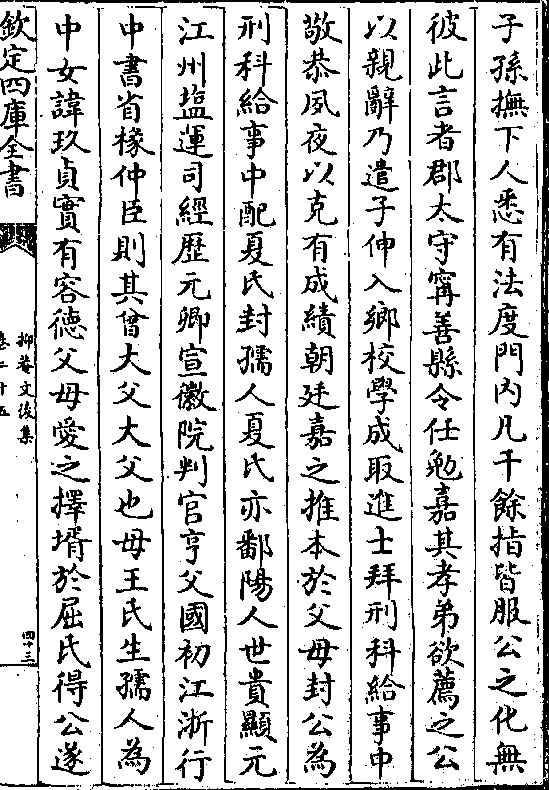 子孫撫下人悉有法度門内凡千餘指皆服公之化無
彼此言者郡太守甯善縣令任勉嘉其孝弟欲薦之公
以親辭乃遣子伸入鄉校學成取進士拜刑科給事中
敬恭夙夜以克有成績朝廷嘉之推本於父母封公為
刑科給事中配夏氏封孺人夏氏亦鄱陽人世貴顯元
江州塩運司經歷元卿宣徽院判官亨父國初江浙行
中書省椽仲臣則其曾大父大父也母王氏生孺人為
中女諱玖貞實有容德父母愛之擇壻於屈氏得公遂
欽定四庫全書
抑菴文後集
卷二十五
四十三